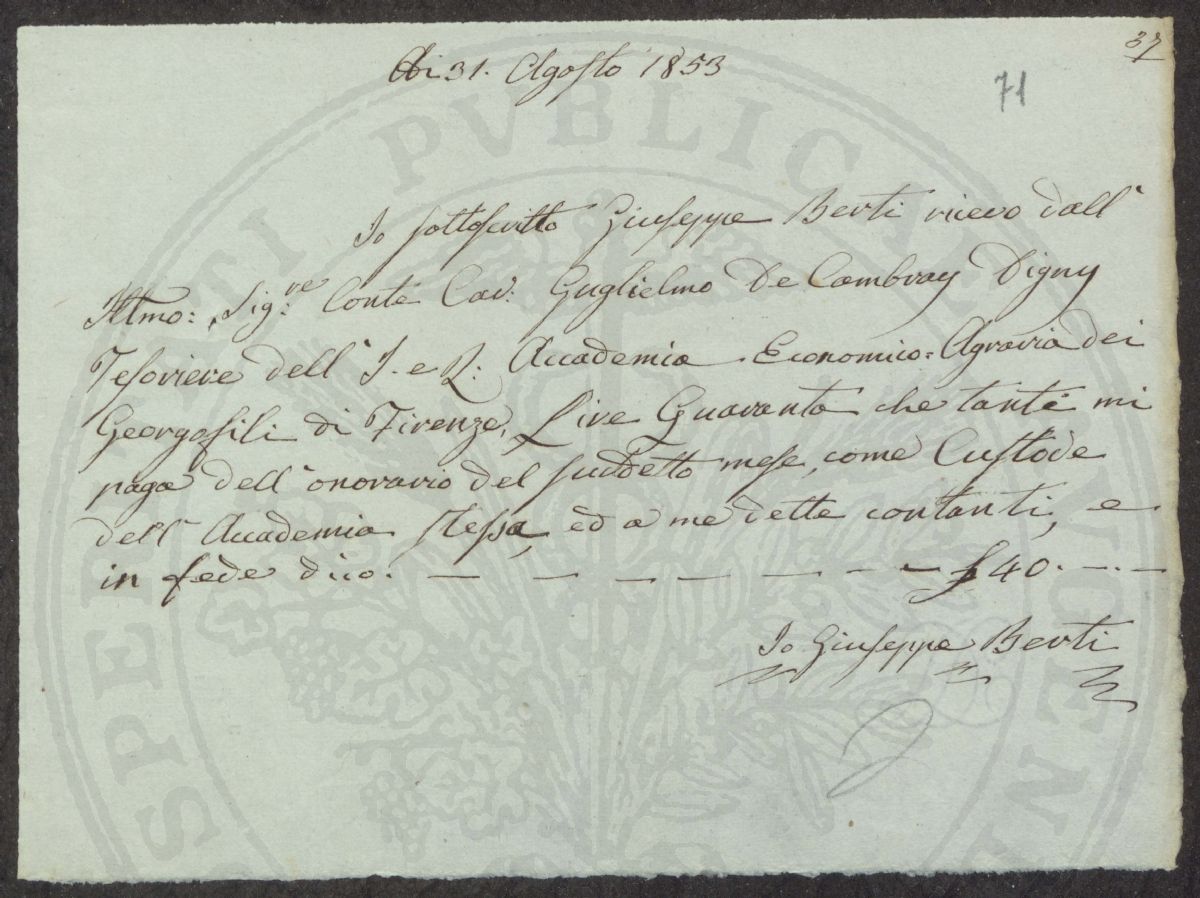 37
Adi 31. Agosto 1853
71
Io sottoscritto Giuseppe Berti ricevo dall'
Illmo: Sig:re Conte Cav: Guglielmo De Cambray Digny
Tesoriere dell' I. e R: Accademia Economico=Agraria dei
Georgofili di Firenze, Lire Quaranta che tante mi
paga dell' onorario del suddetto mese, come Custode
dell' Accademia stessa, ed a me dette contanti, e
in fede dico. — — — — — — — — £ 40. — . —
Io Giuseppe Berti
PROSPERITATI PVBLICAE AVGENDAE